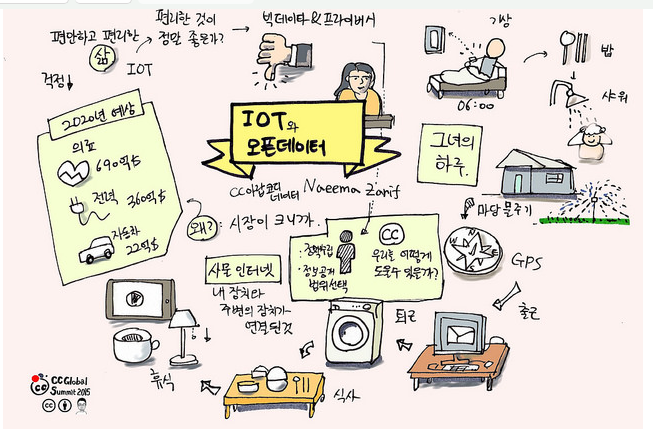 편안하고 편리한
삶
IOT
걱정↓
편리한 것이
정말 좋은가?
빅데이타&프라이버시
기상
06:00
밥
샤워
2020년 예상
의료
690억$
전력
360억$
자동차
22억$
IOT와
오픈데이터
CC아랍코디
네이터 Naeema Zarif
왜?
: 시장이 크니까.
그녀의
하루.
마당 물주기
GPS
출근
퇴근
식사
휴식
사물 인터넷
내 장치와
주변의 장치가
연결된것
: 정책수립
· 정보공개
범위선택
CC
우리는 어떻게
도울수 있을까?
CC Global
Summit 2015